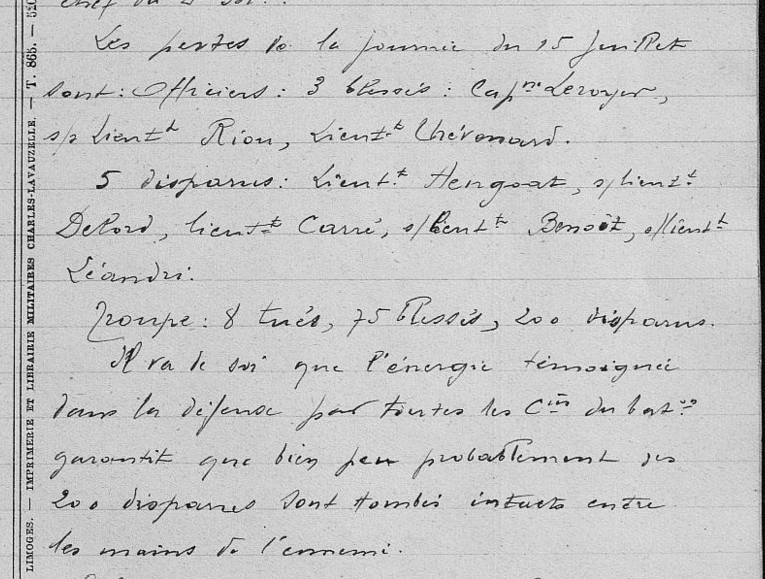 chef du
Les pertes de la journée du 15 Juillet
sont : Officiers : 3 blessés : Cap^ne Leroyer,
s/s Lieut^t Riou, Lieut^t Chévenard.
5 disparus : Lieut^t Hengoat, s/lieut^t
Delord, lieut^t Carré, s/lieut^t Benoît, s/lieut^t
Léandri.
Troupe : 8 tués, 75 blessés, 200 disparus.
Il va de soi que l'énergie témoignée
dans la défense par toutes les C^ies du bat^on
garantit que bien peu probablement des
200 disparus sont tombés intacts entre
les mains de l'ennemi.
LIMOGES. — IMPRIMERIE ET LIBRAIRIE MILITAIRES CHARLES-LAVAUZELLE. — T. 865. —